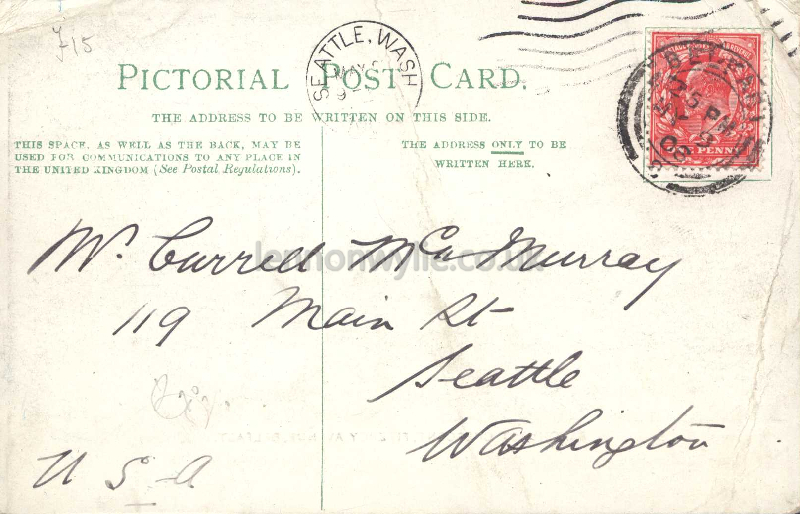 £15
SEATTLE, WASH
MAY
9
BELFAST
5 PM
MY 9
08
POSTAGE REVENUE
ONE PENNY
PICTORIAL POST CARD.
THE ADDRESS TO BE WRITTEN ON THIS SIDE.
THIS SPACE, AS WELL AS THE BACK, MAY BE
USED FOR COMMUNICATIONS TO ANY PLACE IN
THE UNITED KINGDOM (See Postal Regulations).
THE ADDRESS ONLY TO BE
WRITTEN HERE.
Mr. Currell McMurray
lennonwylie.co.uk
119 Main St
Seattle
Washington
U S A